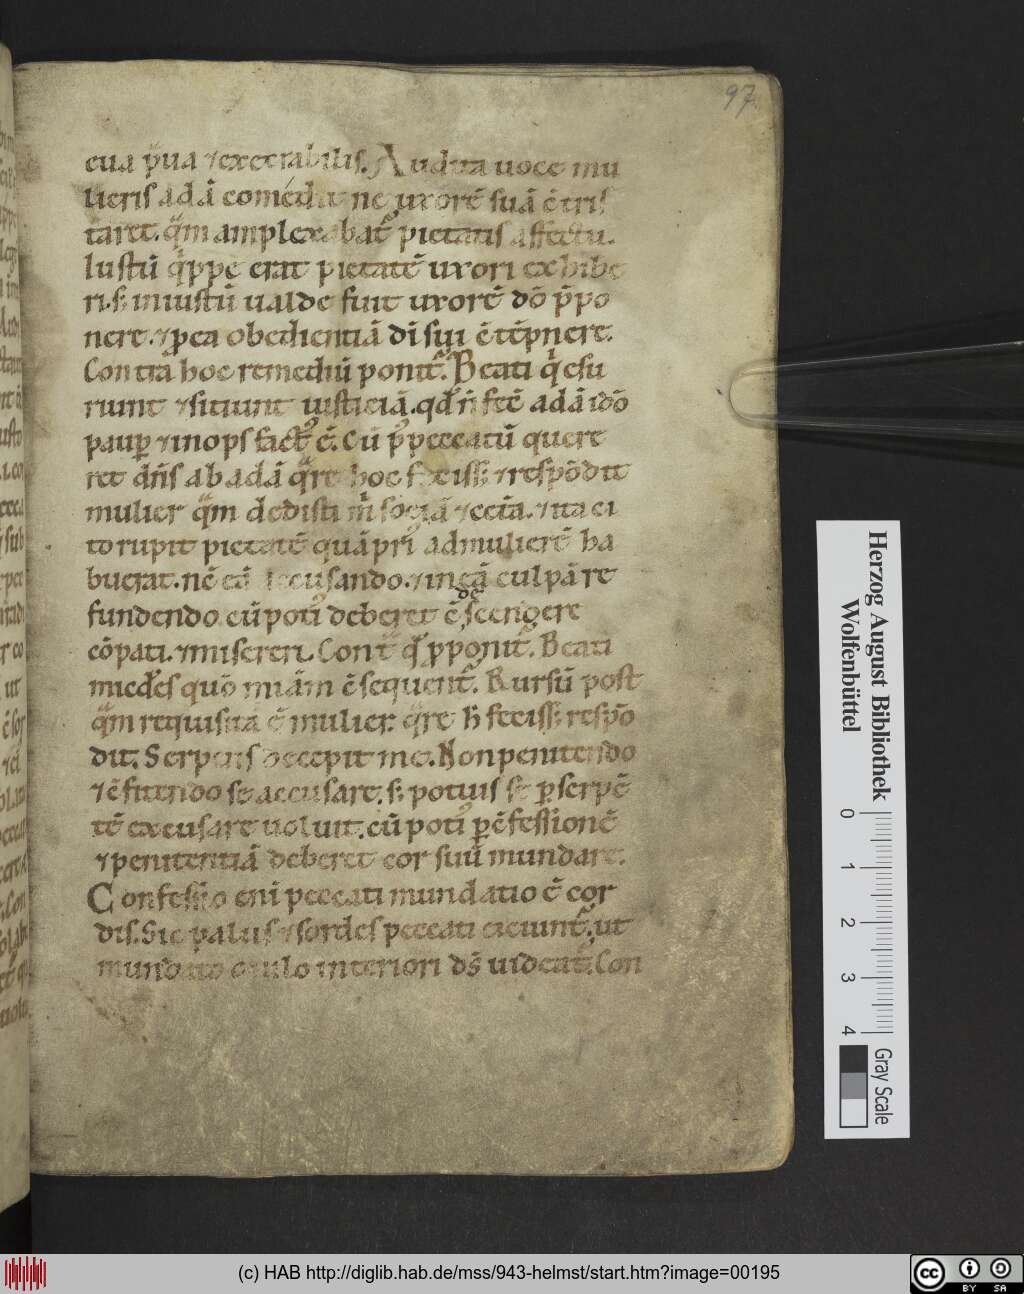 97
eua p̄ua ⁊execrabilis. Audita uoce mu
lieris adā comedit ne uxorē suā ctris
taret. q̄m amplexabat᷑ pietatis affectu.
Iustū q̇ppe erat pietatē uxori exhibe
ri. s; iniustū ualde fuit uxorē dō p̄po
nere. ⁊pea obedientiā dī sui ctēpnere.
Contra hoc remediū ponit᷑. Beati q̇ esu
riunt ⁊sitiunt iusticiā. qd̄ n̄ fec̄ adā idō
paup̱ ⁊inops fact᷒ ē. Cū p᷒ peccatū quere
ret dn̄s ab adā q̄re hoc fecisset; ⁊respōdit
mulier q̄m dedisti m̄ sociā ⁊cet̄a. ⁊ita ci
to rupit pietatē quā pri᷒ ad mulierē ha
buerat. nc̄ eā accusando. ⁊in eā culpā re
fundendo. cū poti᷒ deberet cdescendere
cōpati. ⁊misereri. Cont̄ qd̄ p̱ponit᷑. Beati
micd̄es quō miām csequent᷑. Rursū post
q̄m requisita ē mulier. q̄re h̄ fecisset; respō
dit; Serpens decepit me. Non penitendo
⁊cfitendo se accusare. s; potius se p̱ serpē
tē excusare uoluit. cū poti᷒ p̱ cfessionē
⁊penitentiā deberet cor suū mundare.
Confessio enī peccati mundatio ē cor
dis. Sic palus ⁊sordes peccati eiciunt᷑, ut
mundato oculo interiori ds̄ uideat᷑. Con
Herzog August Bibliothek
Wolfenbüttel
0 1 2 3 4
Gray Scale
(c) HAB http://diglib.hab.de/mss/943-helmst/start.htm?image=00195
cc BY SA